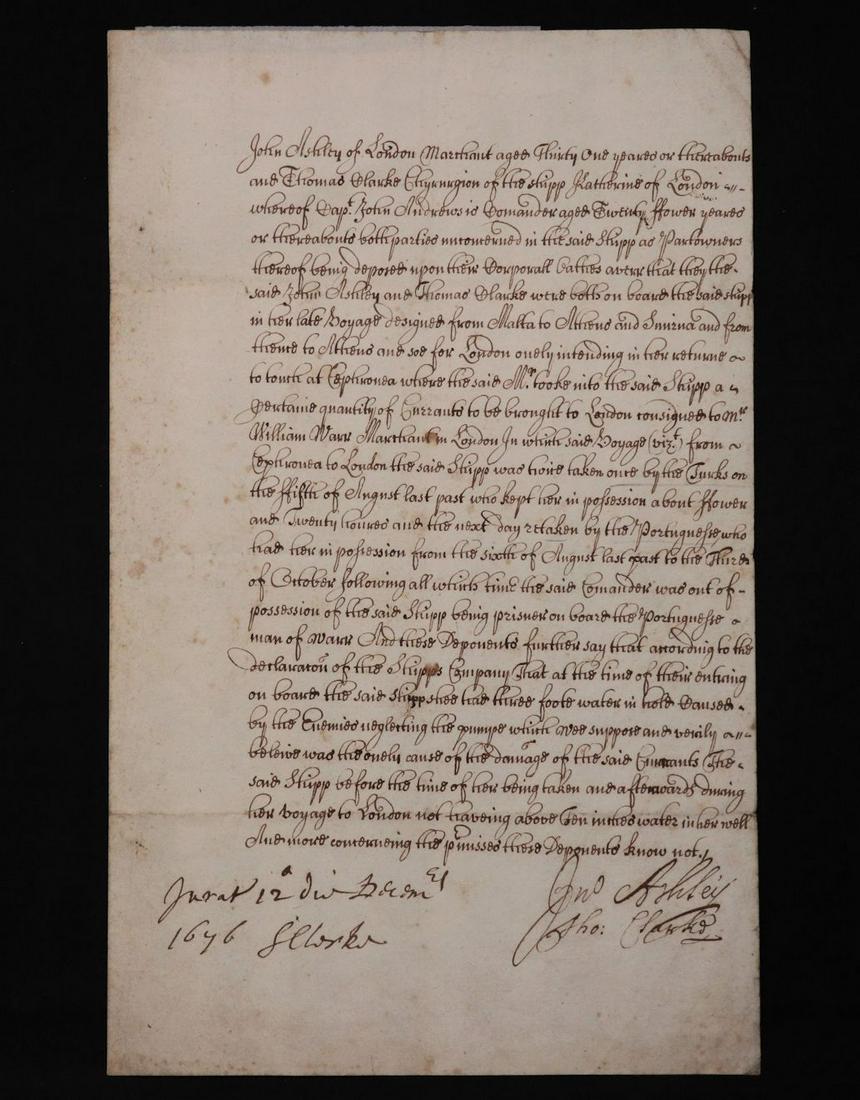 John Ashley of London Marchant aged Thirty One yeares or thereabouts
and Thomas Clarke Chyrurgion of the shipp Katherine of London
whereof Capt. John Andrews is Comander aged Twenty ffower yeares
or thereabouts both parties unconcerned in the said Shipp as Partowners
thereof being deposed upon their Corporall oathes averr that they the
said John Ashley and Thomas Clarke were both on board the said shipp
in her late Voyage designed from Malta to Athens and Smirna and from
thence to Athens and soe for London onely intending in her returne
to touch at Cephronea where the said Mr. tooke into the said Shipp a
certaine quantity of Currants to be brought to London consigned to Mr.
William Warr Marchant in London In which said Voyage (vizt.) from
Cephronea to London the said Shipp was twice taken once by the Turks on
the ffifth of August last past who kept her in possession about ffower
and Twenty houres and the next day retaken by the Portuguesse who
had her in possession from the sixth of August last past to the Third
of October following all which time the said Comander was out of
possession of the said Shipp being prisner on board the Portuguesse
man of Warr And these Deponents further say that according to the
declaracon of the Shipps Company That at the time of their entring
on board the said Shipp shee had three foote water in hold Caused
by the Enemies neglecting the pumpe which wee suppose and verily
beleive was the onely cause of the damage of the said Currants The
said Shipp before the time of her being taken and afterwards during
her voyage to London not haveing above Ten inches water in her well
And more concerneing the pmisses these Deponents know not.
Jno Ashley
Tho: Clarke
Jurat 12o die Decembr
1676 Clerke